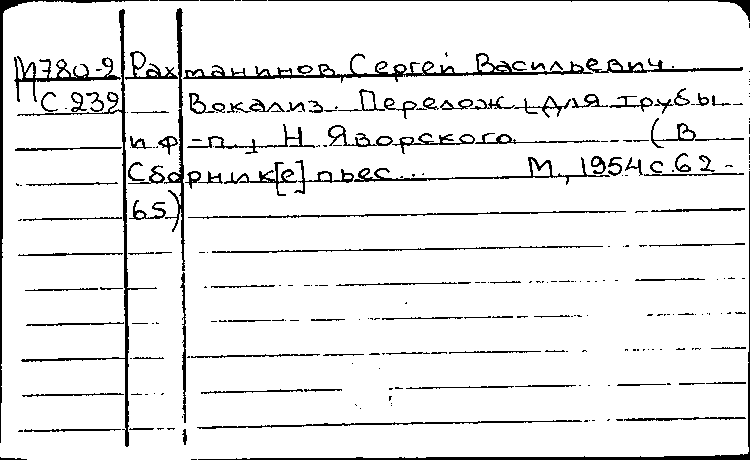 М780-2 Рахманинов, Сергей Васильевич.
С.232 Вокализ. Перелож. [для трубы
и ф-п.] Н Яворского (В
Сборник[е] пьес... М., 1954 с.62-
65)